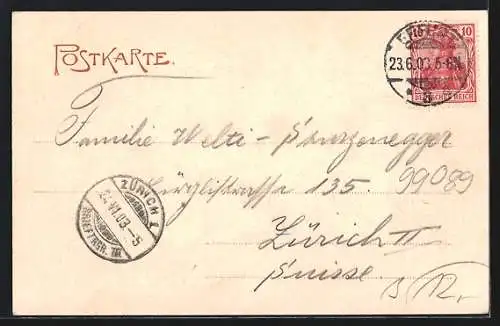 POSTKARTE.
10
23.6.03. 5-6N.
DEUTSCHES REICH
Familie Welti-Sunzenegger
99089
135.
ZÜRICH 1
24.VI.03.-5
BRIEFTRÄG. III
Zürich II
Suisse.